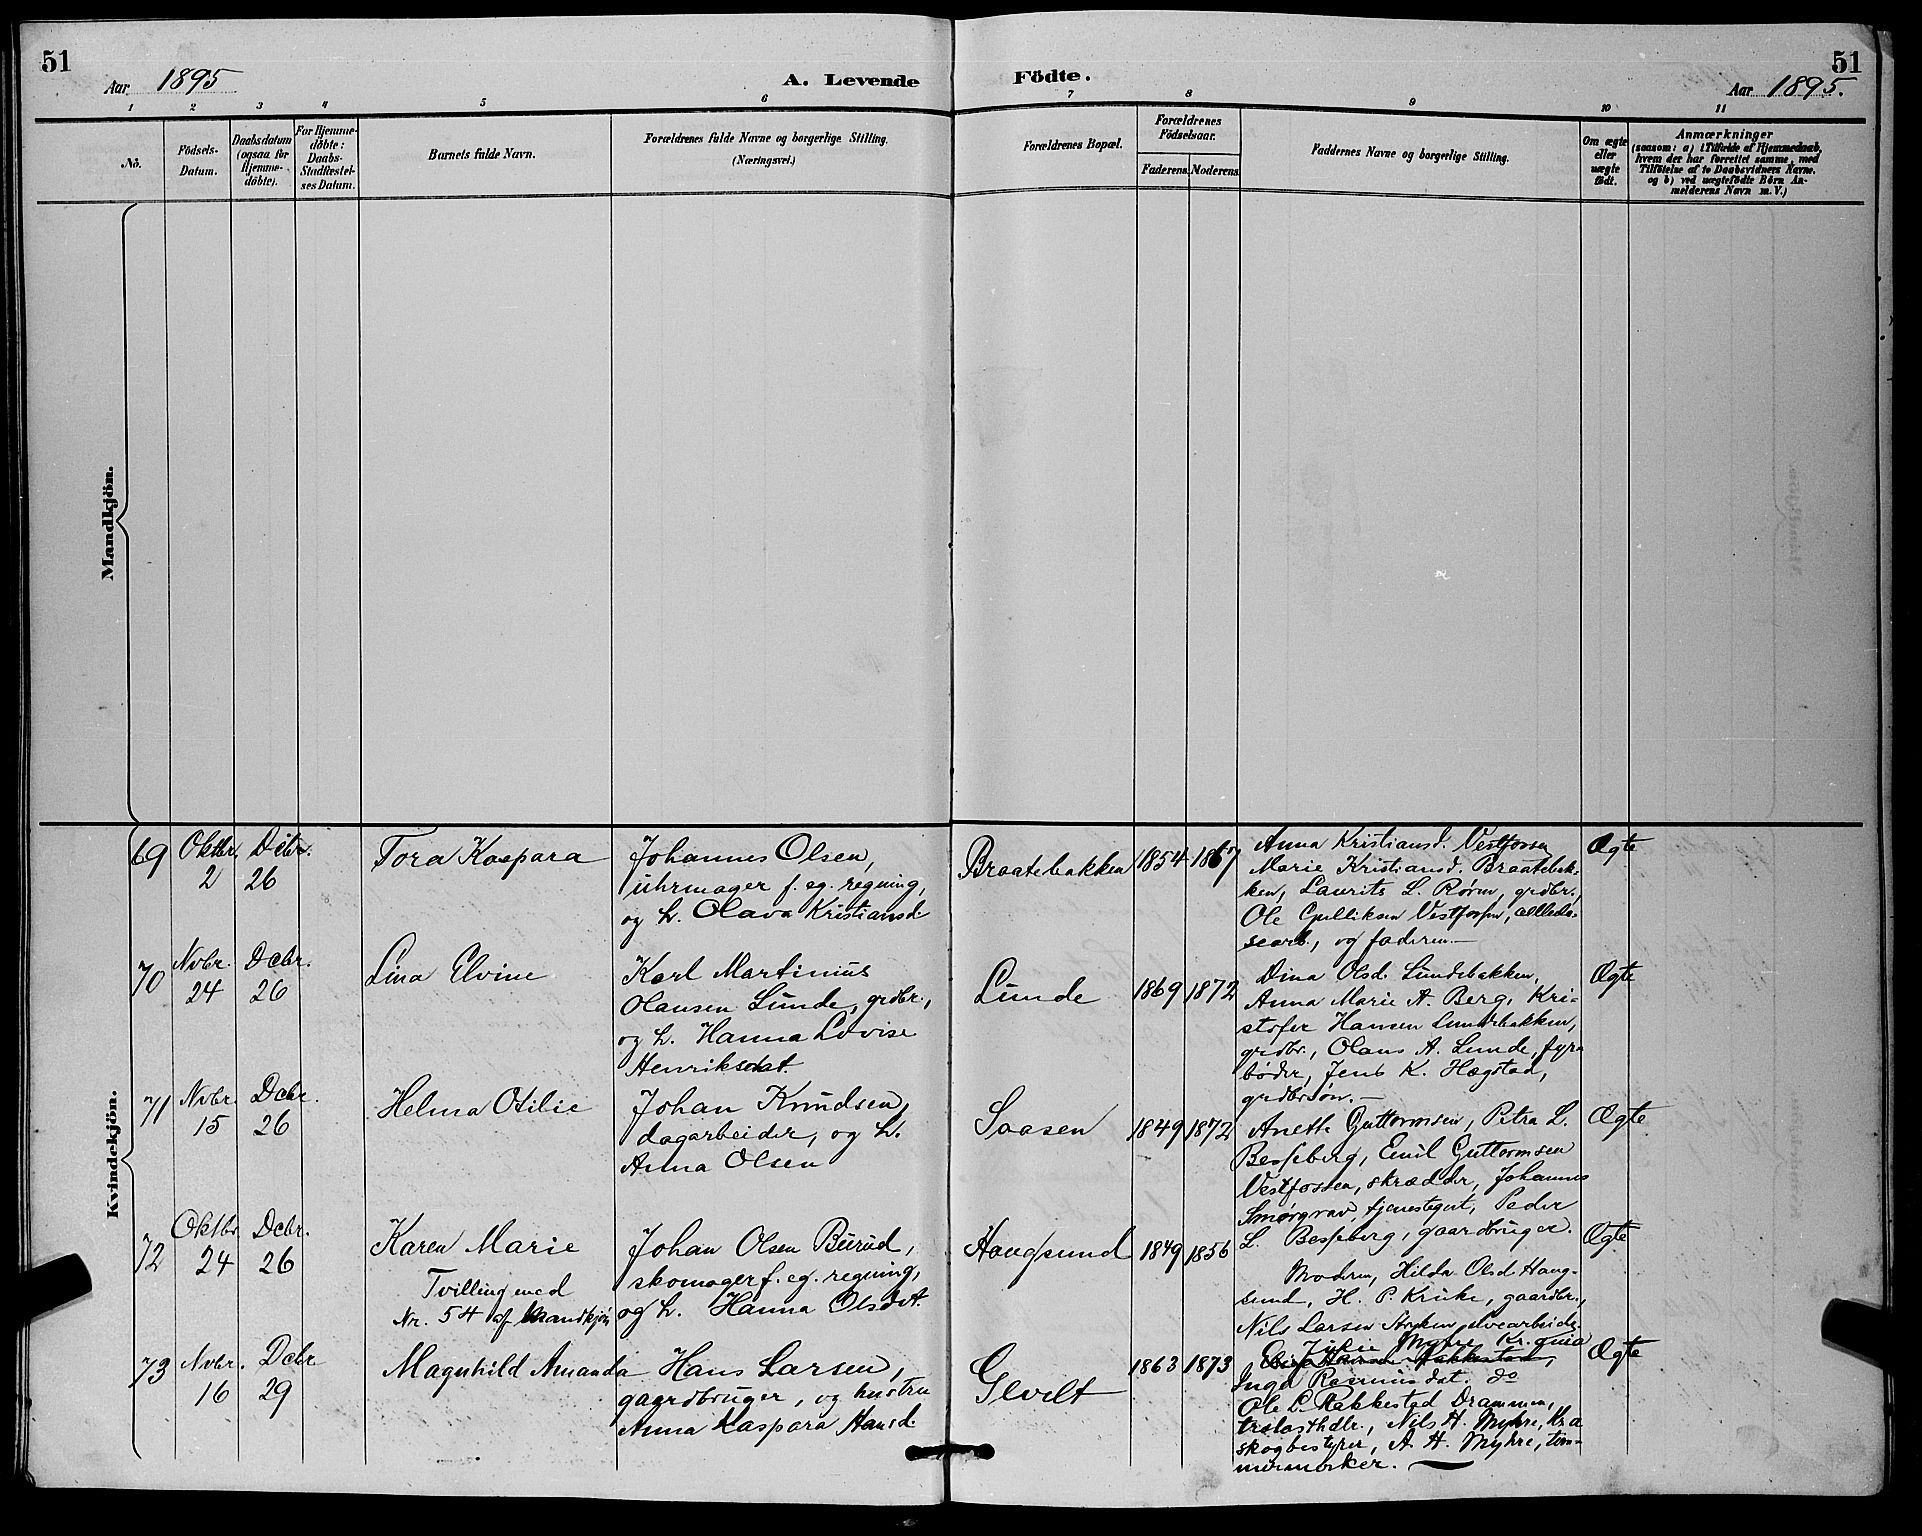 51
Aar 1895
A. Levende Födte.
Aar 1895.
51
1 2 3 4 5 6 7 8 9 10 11
No.
Födsels-Datum.
Daabsdatum (ogsaa for Hjemme-döbte).
For Hjemme-döbte: Daabs-Stadfæstel-ses Datum.
Barnets fulde Navn.
Forældrenes fulde Navne og borgerlige Stilling. (Næringsvei.)
Forældrenes Bopæl.
Forældrenes Födselsaar.
Faderens. Moderens.
Faddernes Navne og borgerlige Stilling.
Om ægte eller uægte födt.
Anmærkninger
(saasom: a) i Tilfælde af Hjemmedaab,
hvem der har forrettet samme, med
Tilföielse af to Daabsvidners Navne.
og b) ved uægtefödte Börn An-
melderens Navn m. V.)
Mandkjön.
Kvindekjön.
69 Oktbr. 2 Dcbr. 26
Tora Kaspara
Johannes Olsen,
uhrmager f. eg. regning,
og h. Olava Kristiansd.
Braatebakken 1854 1867
Anna Kristiansd. Vestfossen
Marie Kristiansd. Braatebak-
ken, Laurits L. Røren, grdbr.,
Ole Gulliksen Vestfossen, cellulo-
searb., og faderen.—
Ægte
70 Nvbr. 24 Dcbr. 26
Lina Elvine
Karl Martinius
Olausen Lunde, grdbr.,
og h. Hanna Lovise
Henriksdat.
Lunde 1869 1872
Dina Olsd. Lundebakken,
Anna Marie A. Berg, Kri-
stofer Hansen Lundebakken,
grdbr., Olaus A. Lunde, fyr-
bøder, Jens K. Hægstad,
grdbrsøn.—
Ægte
71 Nvbr. 15 Dcbr. 26
Helma Otilie
Johan Knudsen,
dagarbeider, og h.
Anna Olsen
Saasen 1849 1872
Anette Guttormsen, Petra L.
Besseberg, Emil Guttormsen
Vestfossen, skrædder, Johannes
Smørgrav, tjenestegut, Peder
L. Besseberg, gaardbruger.
Ægte
72 Oktbr. 24 Dcbr. 26
Karen Marie
Tvilling med
Nr. 54 af Mandkjøn
Johan Olsen Burud,
skomager f. eg. regning,
og h. Hanna Olsdt.
Haugsund 1849 1856
Moderen, Hilda Olsd. Haug-
sund, H. P. Kruke, gaardbr.,
Nils Larsen elvearbeide.
Ægte
73 Nvbr. 16 Dcbr 29
Magnhild Amanda
Hans Larsen,
gaardbruger, og hustru
Anna Kaspara Hansd.
Gevelt
1863 1873
Julie Myhre
Rakkestad,
Inga Rasmusdat. do
Ole L. Rakkestad Drammen,
trælasthdlr., Nils H. Myhre, Kra
skogbestyrer, A. H. Myhre, töm-
mermerker. —
Ægte